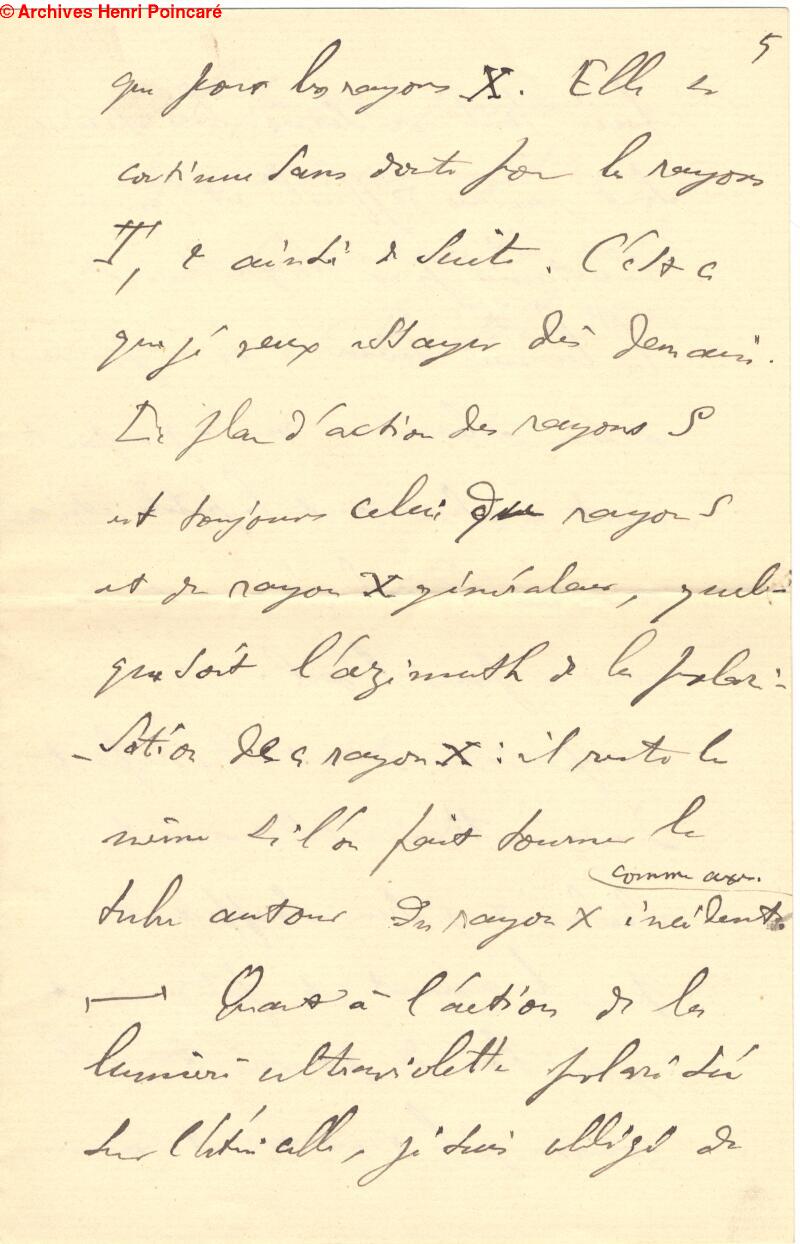 © Archives Henri Poincaré
5
que pour les rayons X. Elle se
continue sans doute pour les rayons
T, & ainsi de suite. C'est ce
que je veux essayer dès demain.
Le plan d'action des rayons S
est toujours celui du rayon S
et du rayon X générateur, quel-
que soit l'azimuth de la polari-
-sation de ce rayon X : il reste le
même si l'on fait tourner le
tube autour du rayon X incident
comme axe.
Quant à l'action de la
lumière ultraviolette polarisée
sur l'étincelle, je suis obligé de